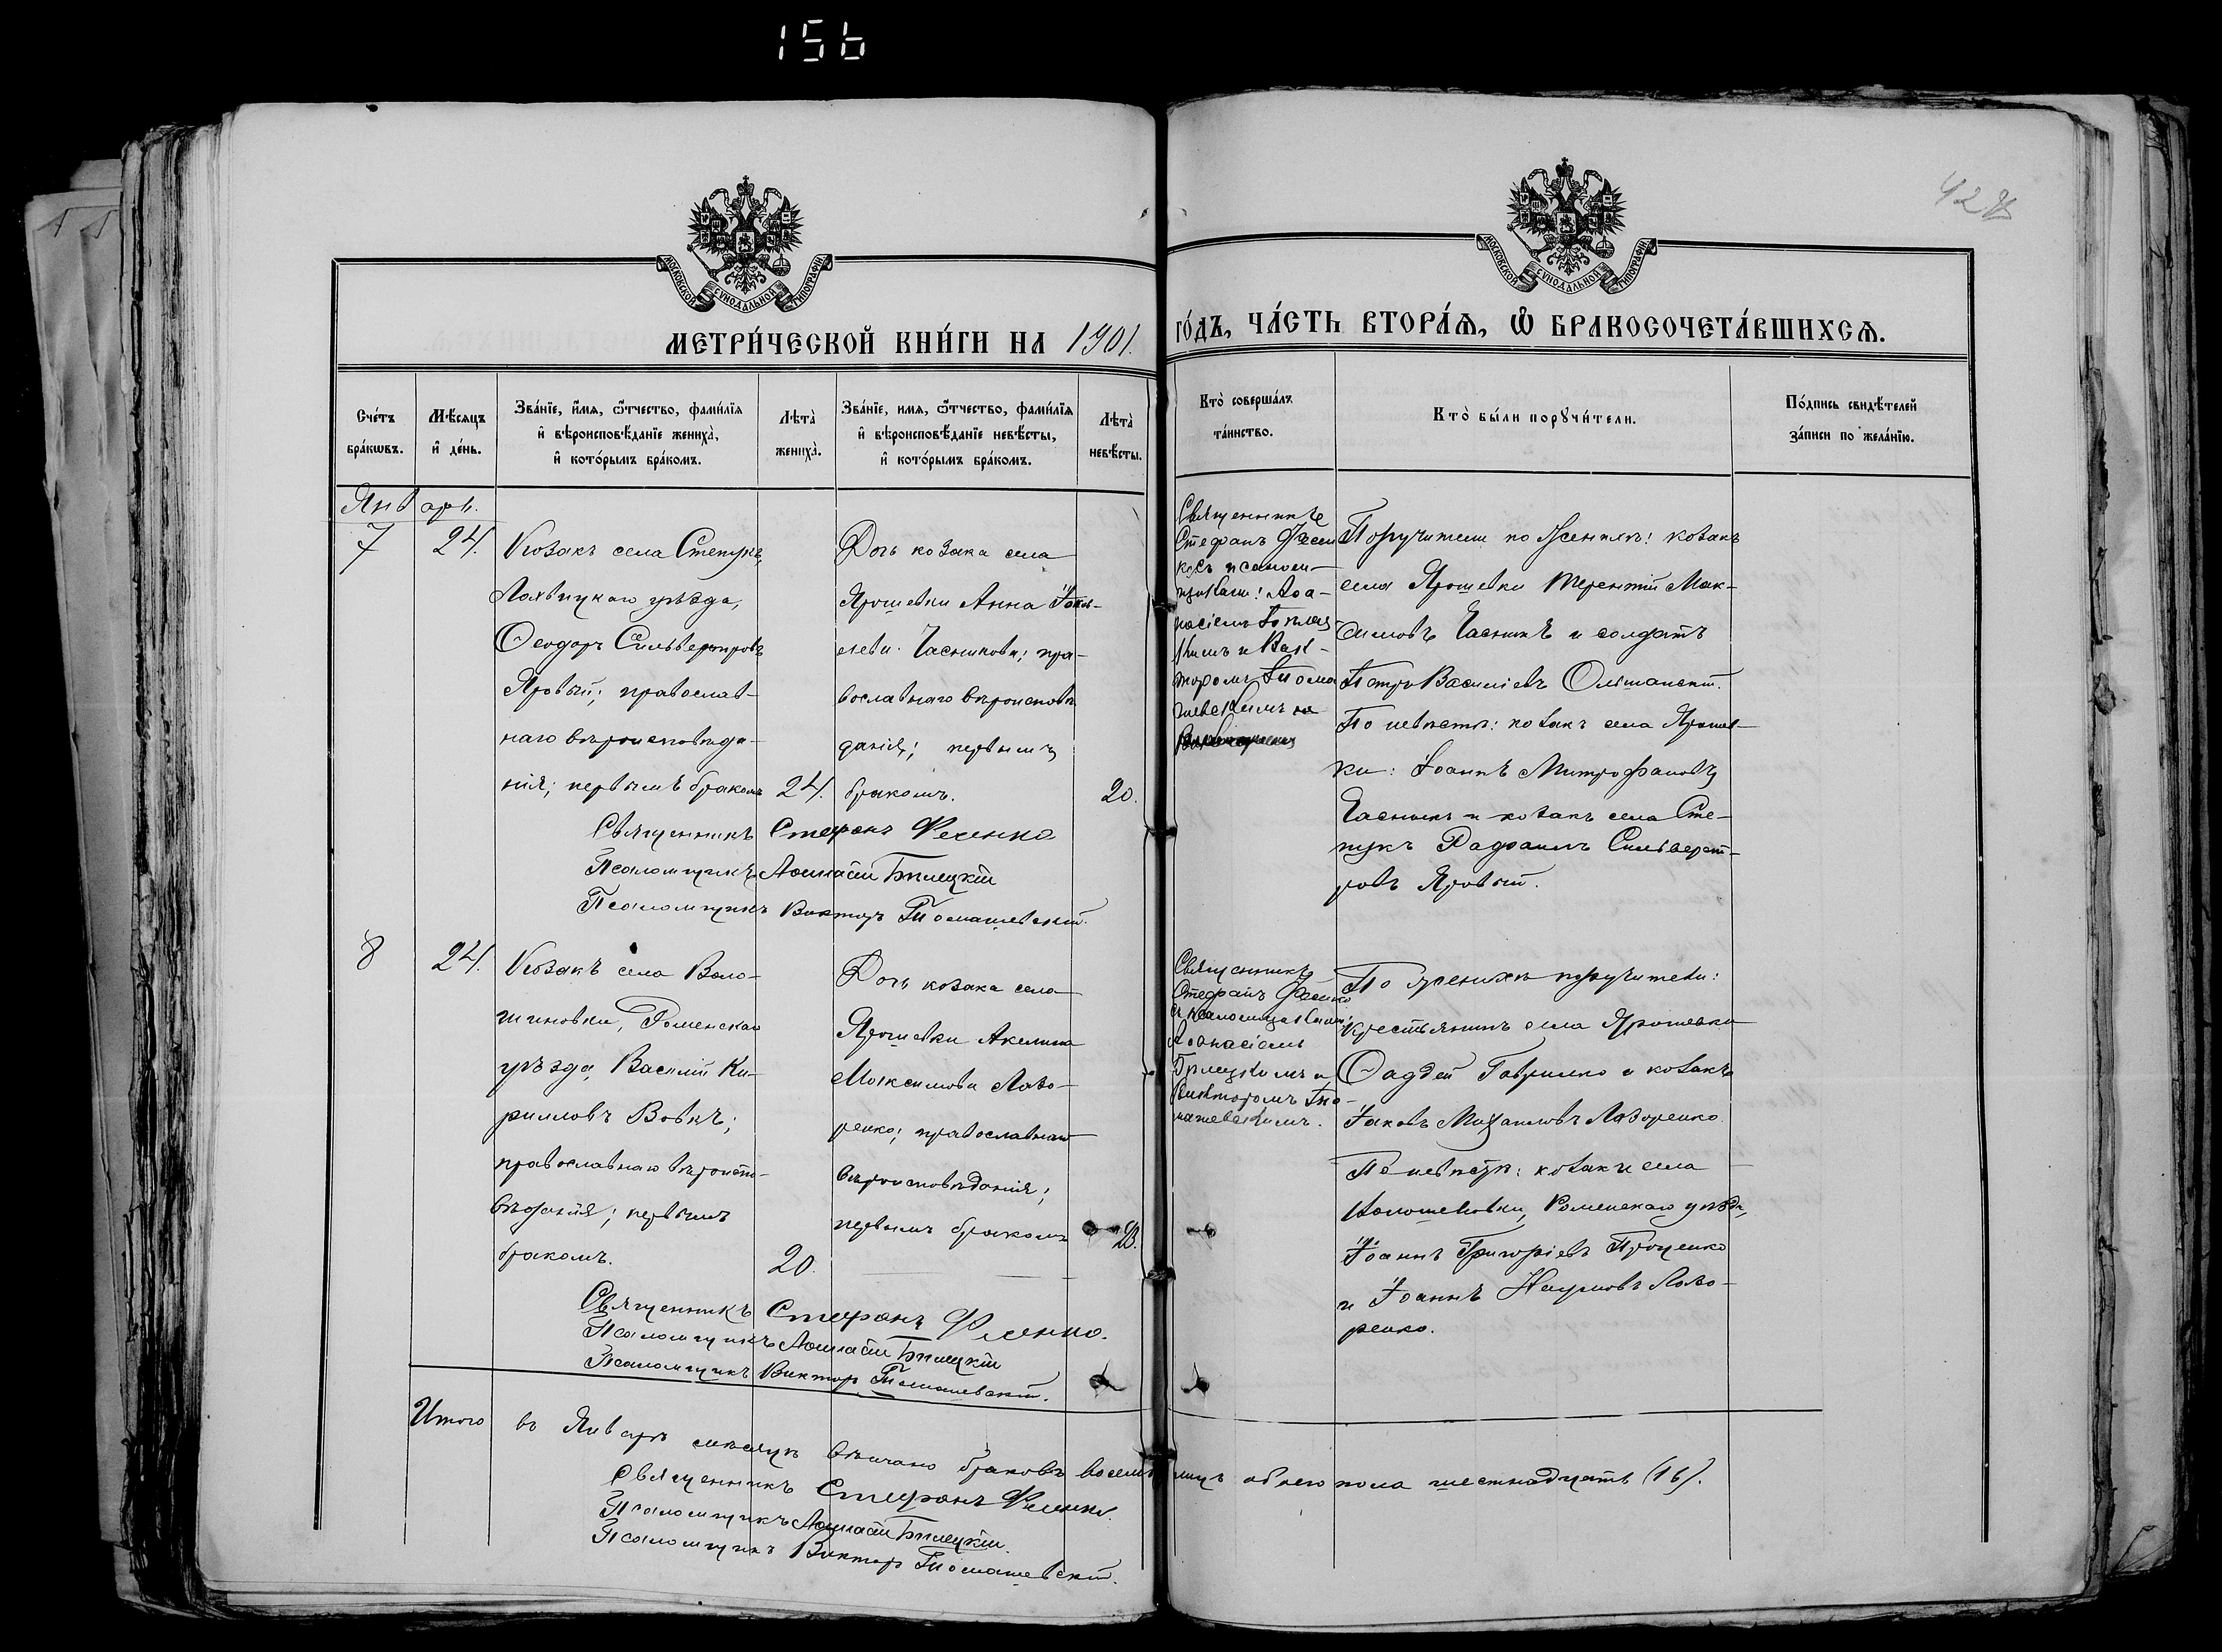 156
428
МОСКОВСКОЙ СѴНОДАЛЬНОЙ ТИПОГРАФІИ
МОСКОВСКОЙ СѴНОДАЛЬНОЙ ТИПОГРАФІИ
МЕТРИ́ЧЕСКОЙ КНИ́ГИ НА 1901. ГО́ДЪ, ЧА́СТЬ ВТОРА́Ѧ, Ѽ БРАКОСОЧЕТА́ВШИХСѦ.
Сче́тъ
бра́кѡвъ.
Мѣ́сяцъ
и҆ де́нь.
Зва́нїе, и҆́мя, ѻ҆́тчество, фами́лїя
и҆ вѣроисповѣ́данїе жениха̀,
и҆ кото́рымъ бра́комъ.
Лѣта̀
жениха̀.
Зва́нїе, имя, ѻ҆́тчество, фами́лїя
и҆ вѣроисповѣ́данїе невѣ́сты,
и҆ кото́рымъ бра́комъ.
Лѣта̀
невѣ́сты.
Кто̀ соверша́лъ
та́инство.
Кто̀ бы́ли порꙋчи́тели.
По́дпись свидѣ́телей
за́писи по жела́нїю.
Январь.
7
24.
Козакъ села Степукъ,
Лохвицкаго уѣзда,
Ѳеодоръ Сильверстровъ
Яровый; православ-
наго вѣроисповѣда-
нія; первымъ бракомъ
24.
Дочь козака села
Ярошевки Анна
Часникова; пра-
вославнаго вѣроисповѣ
данія; первымъ
бракомъ.
20.
Священникъ
Стефанъ Фесен
ко съ псалом-
щиками: Аѳа-
насіемъ
и Вик-
торомъ Тома
шевскимъ
Поручители по женихѣ: козакъ
села Ярошевки Терентій Мак-
симовъ Часникъ и солдатъ
Петръ Василіевъ Ольшанскій.
По невѣстѣ: козакъ села Ярошев-
ки: Іоаннъ Митрофановъ
Часникъ и козакъ села Сте-
пукъ Рафаилъ Сильверст-
ровъ Яровый.
Священникъ Стефанъ Фесенко
Псаломщикъ Аѳанасій Бѣлецкій
Псаломщикъ Викторъ Томашевскій.
8
24.
Козакъ села Воло-
шиновки, Роменскаго
уѣзда, Василій Ки-
рилловъ Вовкъ;
православнаго вѣроиспо-
вѣданія; первымъ
бракомъ.
20.
Дочь козака села
Ярошевки Акилина
Максимова Лазо-
ренко; православнаго
вѣроисповѣданія;
первымъ бракомъ
Священникъ
Стефанъ Фесенко
съ псаломщиками:
Аѳанасіемъ
Бѣлецкимъ и
Викторомъ То-
машевскимъ.
По женихѣ поручители:
крестьянинъ села Ярошевки
Ѳаддей Гаврилко и козакъ
Іаковъ Михаиловъ Лазоренко.
По невѣстѣ: козаки села
Роменскаго уѣзда,
Іоаннъ Григоріевъ Проценко
и Іоаннъ Наумовъ Лазо-
ренко.
Священникъ Стефанъ Фесенко.
Псаломщикъ Аѳанасій Бѣлецкій
Псаломщикъ Викторъ Томашевскій.
Итого въ Январѣ мѣсяцѣ вѣнчано браковъ восемь лицъ обоего пола шестнадцать (16).
Священникъ Стефанъ Фесенко.
Псаломщикъ Аѳанасій Бѣлецкій.
Псаломщикъ Викторъ Томашевскій.